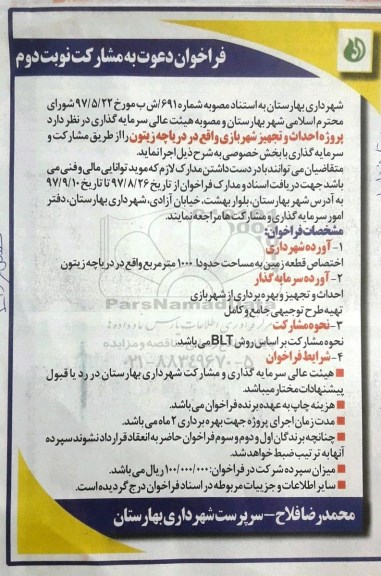 فراخوان دعوت به مشارکت نوبت دوم
شهرداری بهارستان به استناد مصوبه شماره ۶۹۱/ش ب مورخ ۹۷/۵/۲۲ شورای
محترم اسلامی شهر بهارستان و مصوبه هیئت عالی سرمایه گذاری در نظر دارد
پروژه احداث و تجهیز شهربازی واقع در دریاچه زیتون را از طریق مشارکت و
سرمایه گذاری با بخش خصوصی به شرح ذیل اجرا نماید.
متقاضیان می توانند با در دست داشتن مدارک لازم که موید توانایی مالی و فنی می
باشد جهت دریافت اسناد و مدارک فراخوان از تاریخ ۹۷/۸/۲۶ تا تاریخ ۹۷/۹/۱۰
به آدرس شهر بهارستان، بلوار بهشت، خیابان آزادی، شهرداری بهارستان، دفتر
امور سرمایه گذاری و مشارکت ها مراجعه نمایند.
مشخصات فراخوان:
۱- آورده شهرداری
اختصاص قطعه زمین به مساحت حدودا ۱۰۰۰ متر مربع واقع در دریاچه زیتون
۲- آورده سرمایه گذار
احداث و تجهیز و بهره برداری از شهربازی
تهیه طرح توجیهی جامع و کامل
ParsNamadData
۳- نحوه مشارکت
نحوه مشارکت بر اساس روش BLT می باشد.
۰۲۱-۸۸۳۴۹۶۷۰-۵
۴- شرایط فراخوان
هیئت عالی سرمایه گذاری و مشارکت شهرداری بهارستان در رد یا قبول
پیشنهادات مختار میباشد.
هزینه چاپ به عهده برنده فراخوان می باشد.
مدت زمان اجرای پروژه جهت بهره برداری ۲ ماه می باشد.
چنانچه برندگان اول و دوم و سوم فراخوان حاضر به انعقاد قرارداد نشوند سپرده
آنها به ترتیب ضبط خواهد شد.
میزان سپرده شرکت در فراخوان: ۱۰۰/۰۰۰/۰۰۰ ریال می باشد.
سایر اطلاعات و جزییات مربوطه در اسناد فراخوان درج گردیده است.
محمدرضا فلاح - سرپرست شهرداری بهارستان